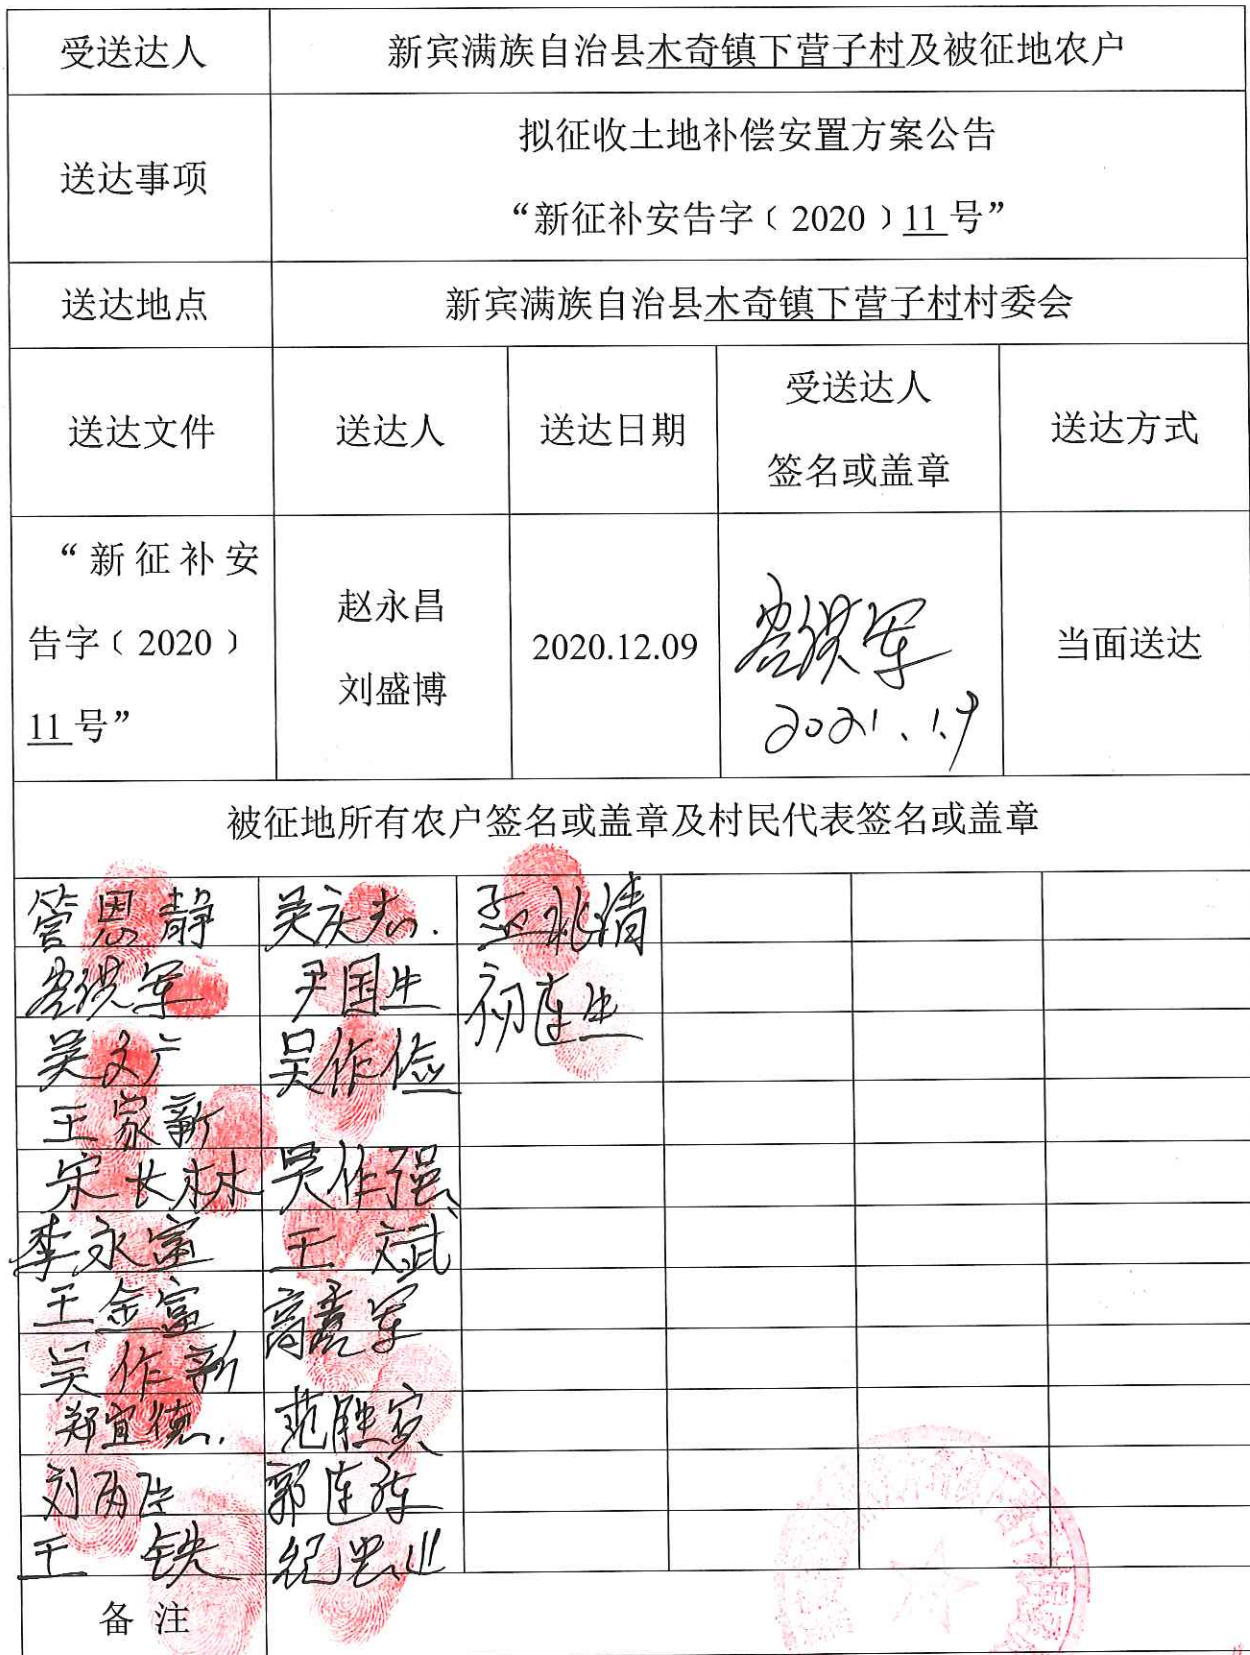 受送达人 新宾满族自治县木奇镇下营子村及被征地农户
送达事项 拟征收土地补偿安置方案公告
“新征补安告字﹝2020﹞11 号”
送达地点 新宾满族自治县木奇镇下营子村村委会
送达文件 送达人 送达日期 受送达人
签名或盖章 送达方式
“新征补安
告字﹝2020﹞
11 号” 赵永昌
刘盛博 2020.12.09 2021.1.9 当面送达
被征地所有农户签名或盖章及村民代表签名或盖章
管恩静 吴庆志 孟兆清
尹国生 初连生
吴文广 吴作俭
王家新
宋长林 吴作强
李永富 王斌
王金富 高喜军
吴作新
郑宜德 范胜安
郭连彦
王铁
备注